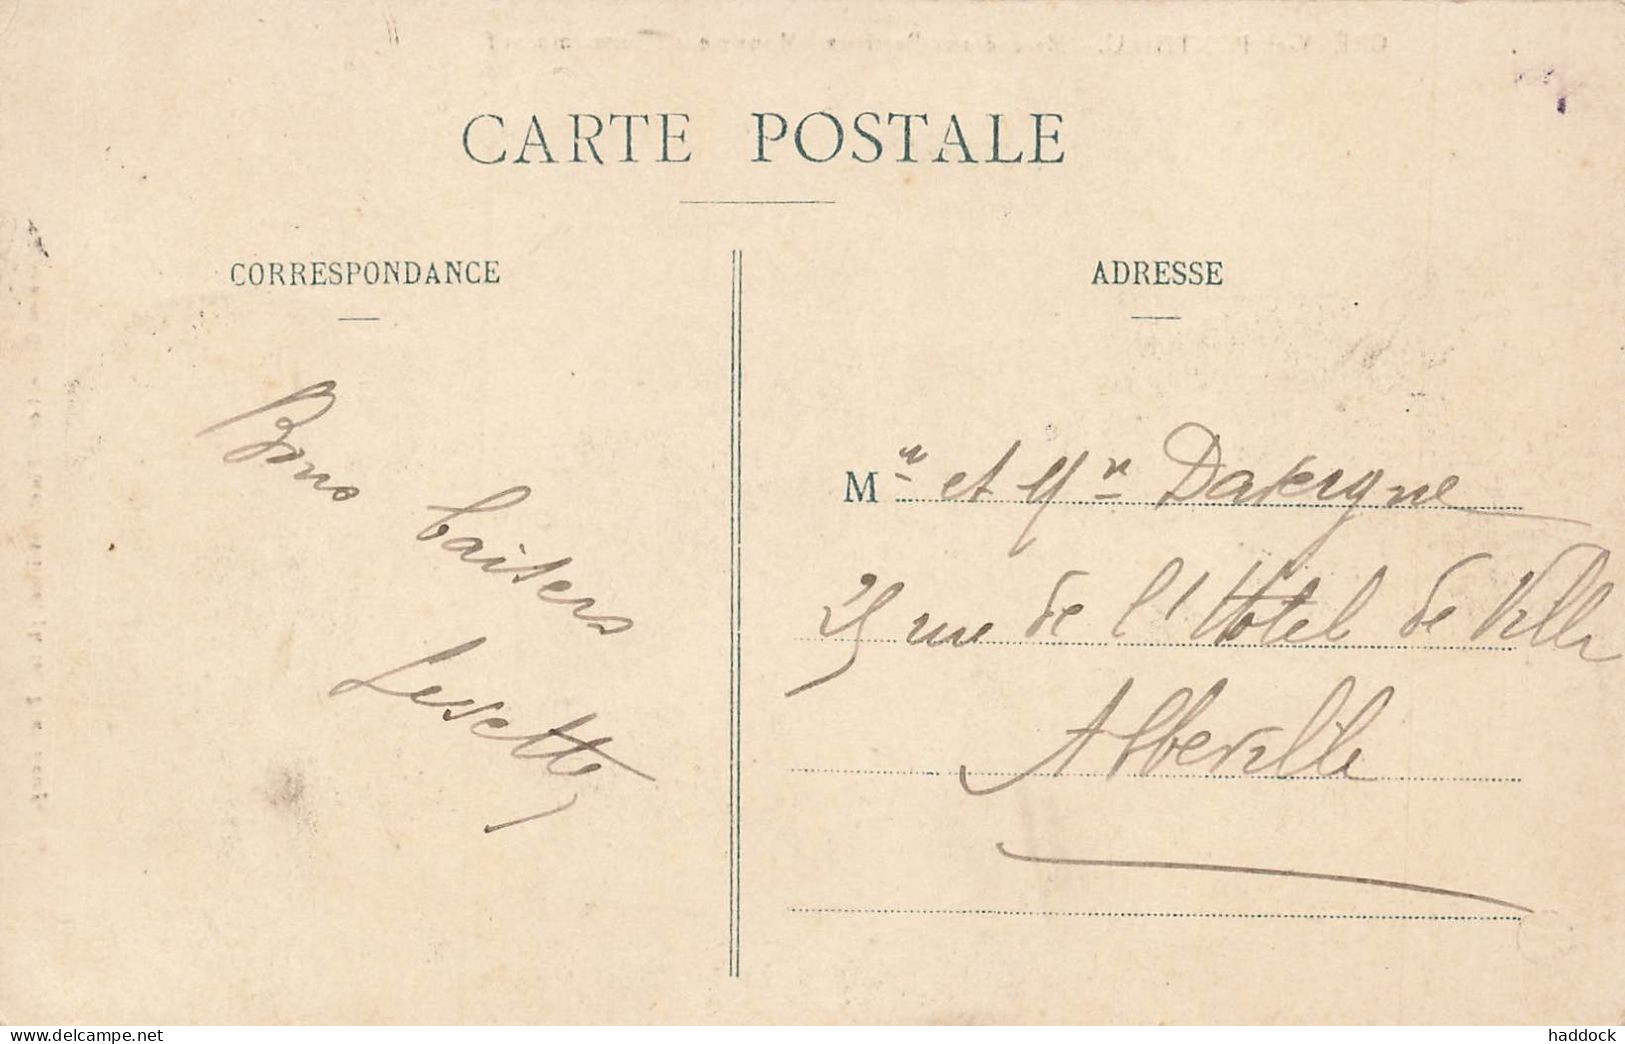 CARTE POSTALE
CORRESPONDANCE
ADRESSE
Bons
baisers
Lusette
M
et
rue de l'Hotel de Ville
Abbeville
delcampe.net
haddock